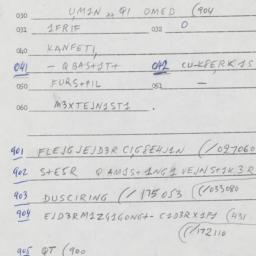 030 UMIN „ QI OMED (904
031 1FRIF 032 0
040 KANFETI
041 - QBAS+1T+ 042 CU-K8ERK1S
050 FURS+PIL -
060 M3XTEJN1ST1 .
901 FLEJGJEJD3R CIG8EHJ1N (/097060
902 S+E5R QAM1S+1NG1VEJNS+1K3R
903 DUSCIRING (/175053 (/033080
904 EJD3RM1ZG1GONG+- C1D3RX1P1 (431
(/172110
905 QT (900